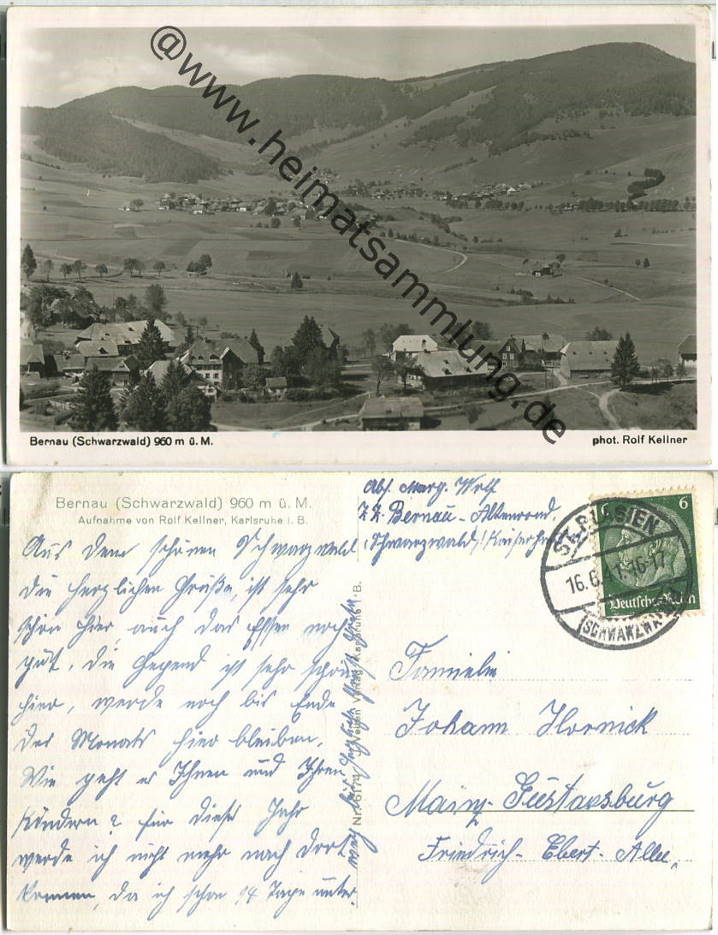 @www.heimatsammlung.de
Bernau (Schwarzwald) 960 m ü. M.
phot. Rolf Kellner
Bernau (Schwarzwald) 960 m ü. M.
Aufnahme von Rolf Kellner, Karlsruhe i. B.
Aus dem schönen Schwarzwald
die herzlichen Grüße, ist sehr
schön hier, auch das Essen noch
gut. Die Gegend ist sehr schön
hier, werde noch bis Ende
des Monats hier bleiben.
Wie geht es Ihnen und Ihren
Kindern? für dieses Jahr
werde ich nicht mehr nach dort
kommen, da ich schon 14 Tage unter-
Karlsruhe i. B.
Abs. Marg. Wolf
z. Z. Bernau-Altenrond,
Schwarzwald
ST. BLASIEN
(SCHWARZWALD)
6
Deutsches Reich
Familie
Johann Hornick
Mainz-Gustavsburg
Friedrich-Ebert-Allee,